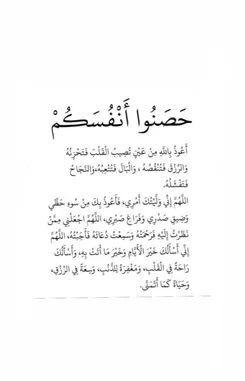 حَصَنُوا أَنْفُسَكُمْ
أَعُوذُ بِاللَّهِ مِنْ عَيْنٍ تُصِيبُ الْقَلْبَ فَتَحْزِنُهُ
وَالرِّزْقَ فَتَنْقُصُهُ ، وَالْبَالَ فَتُتْعِبُهُ،وَالنَّجَاحَ
فَتُفْشِلُهُ.
اللَّهُمَّ إِنِّي وَلَّيْتُكَ أَمْرِي، فَأَعُوذُ بِكَ مِنْ سُوءِ حَظِّي
وَضِيقِ صَدْرِي وَفَرَاغِ صَبْرِي، اللَّهُمَّ اجْعَلْنِي مِمَّنْ
نَظَرْتَ إِلَيْهِ فَرَحِمْتَهُ وَسَمِعْتَ دُعَائَهُ فَأَجَبْتَهُ، اللَّهُمَّ
إِنِّي أَسْأَلُكَ خَيْرَ الْأَيَّامِ وَخَيْرَ مَا أَتَتْ بِهِ، وَأَسْأَلُكَ
رَاحَةً فِي الْقَلْبِ، وَمَغْفِرَةً لِلذَّنْبِ، وَسِعَةً فِي الرِّزْقِ،
وَحَيَاةً كَمَا أَتَمَنَّى.